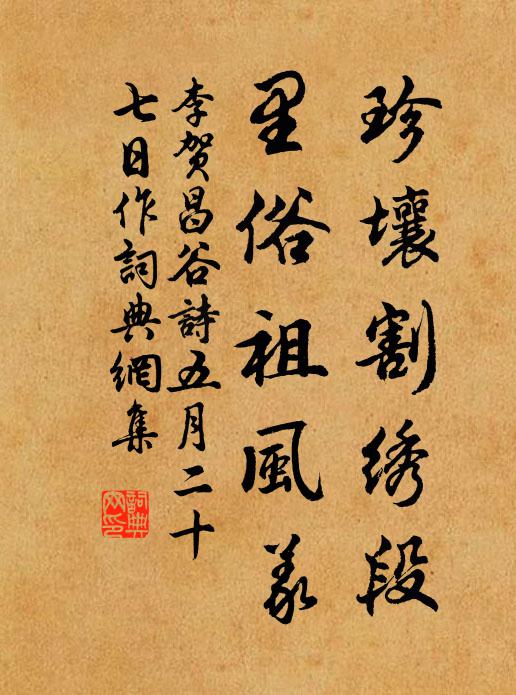 珍壤割绣段
里俗祖風義
李賀昌谷詩五月二十
七日作詞典網集
詞典網印